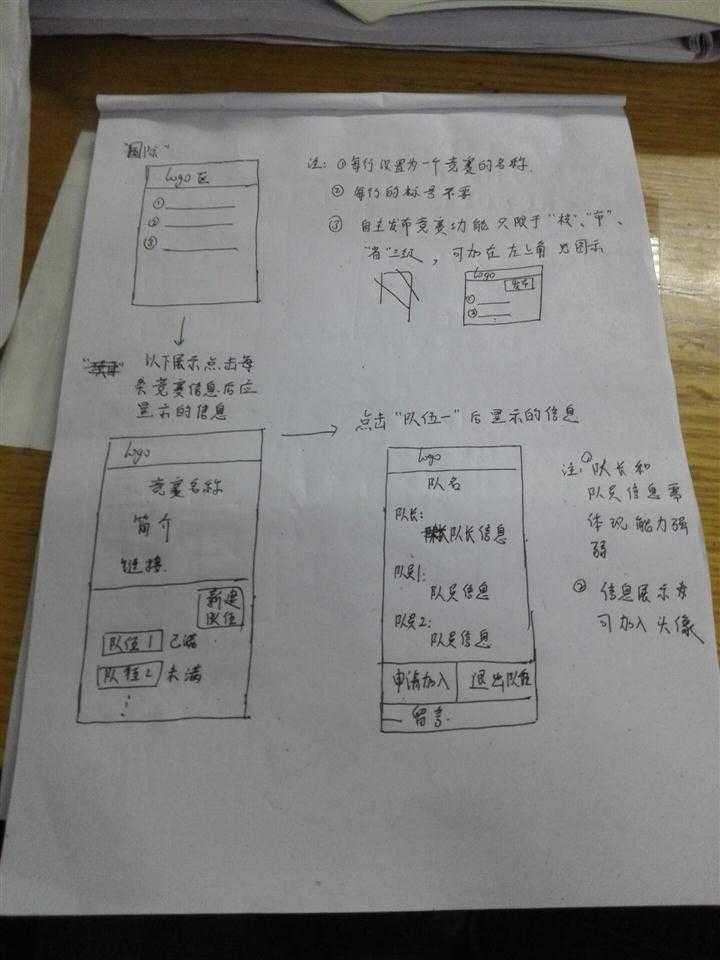 "国际"
logo区
①
②
③
注: ①每行设置为一个竞赛的名称.
②每行的标号不要
③ 自主发布竞赛功能只限于"校"、"市"、
"省"三级, 可加在左上角 如图示
logo
发布
①
②
以下展示点击每
条竞赛信息后应
显示的信息
logo
竞赛名称
简介
链接
新建
队伍
队伍1 已满
队伍2 未满
点击"队伍一"后显示的信息
logo
队名
队长:
队长信息
队员1:
队员信息
队员2:
队员信息
申请加入 退出队伍
留言
注: ①队长和
队员信息要
体现能力强
弱
② 信息展示
可加入头像